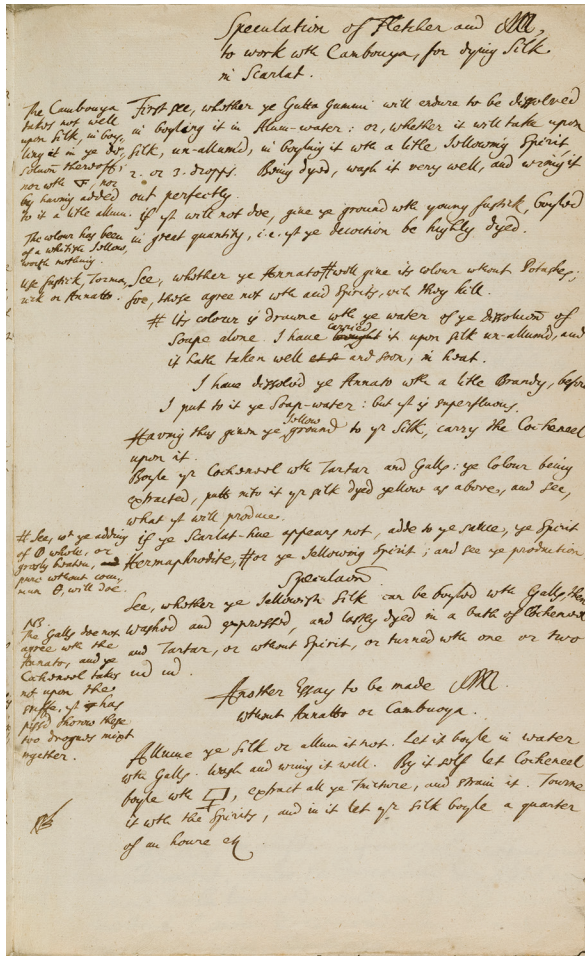 Speculation of Fletcher and
to work wth Cambouya, for dying Silk
in Scarlat.
The Cambouya
takes not well
upon Silk, in boy,
ling it in ye dis,
solution thereof;
nor wth, nor
by having added
to it a litle allum.
The colour has been
of a whitish yellow,
worth nothing.
Use fustick, Torma,
rick or Annatto.
First see, whether ye Gutta Gummi will endure to be dissolved
in boylang it in Alum-water: or, whether it will take upon
Silk, un-allumed, in boyling it wth a litle Jellowing Spirit,
2. or 3. dropps. Being dyed, wash it very well, and wring it
out perfectly.
if yt will not doe, give ye ground wth young fustick, boyled
in great quantity, i.e. yt ye decoction be highly dyed.
See, whether ye Annato # will give its colour wthout Potashes;
for, those agree not wth acid Spirits, wch they kill.
# its colour is drawne wth ye water of ye dissolution of
Soape alone. I have carried it upon silk un-allumd, and
it hath taken well and soon, in heat.
I have dissolved ye Annato wth a litle Brandy, before
I put to it ye Soap-water: but yt is superfluous.
Having thus given ye Jellow ground to yr Silk, carry the Cocheneel
upon it.
Boyle yr Cocheneel wth Tartar and Galls: ye Colour being
extracted, putt into it yr silk dyed yellow as above, and see,
what yt will produce.
if ye Scarlat-hue appears not, adde to ye same, ye Spirit
Hermaphrodite, # or ye Jellowing Spirit; and see ye production
# See, wt ye adding
of whole, or
grosly beaten,
pure without com,
mun, will doe.
Speculation
See, whether ye Jellowish Silk can be boyled wth Galls, then
washed and expressed, and lastly dyed in a bath of Cocheneel
and Tartar, or wthout Spirit, or turned with one or two
ud ud.
NB.
The Galls doe not
agree wth the
Annato, and ye
Cocheneel takes
not upon the
stuffe, yt has
passed thorow these
two drogues mixt
together.
Another Essay to be made
wthout Annatto or Cambuoya.
Allume ye Silk or allum it not. Let it boyle in water
wth Galls. Wash and wring it well. By it self let Cocheneel
boyle wth, extract all ye Tincture, and strain it. Tourne
it wth the Spirits, and in it let yr Silk boyle a quarter
of an houre